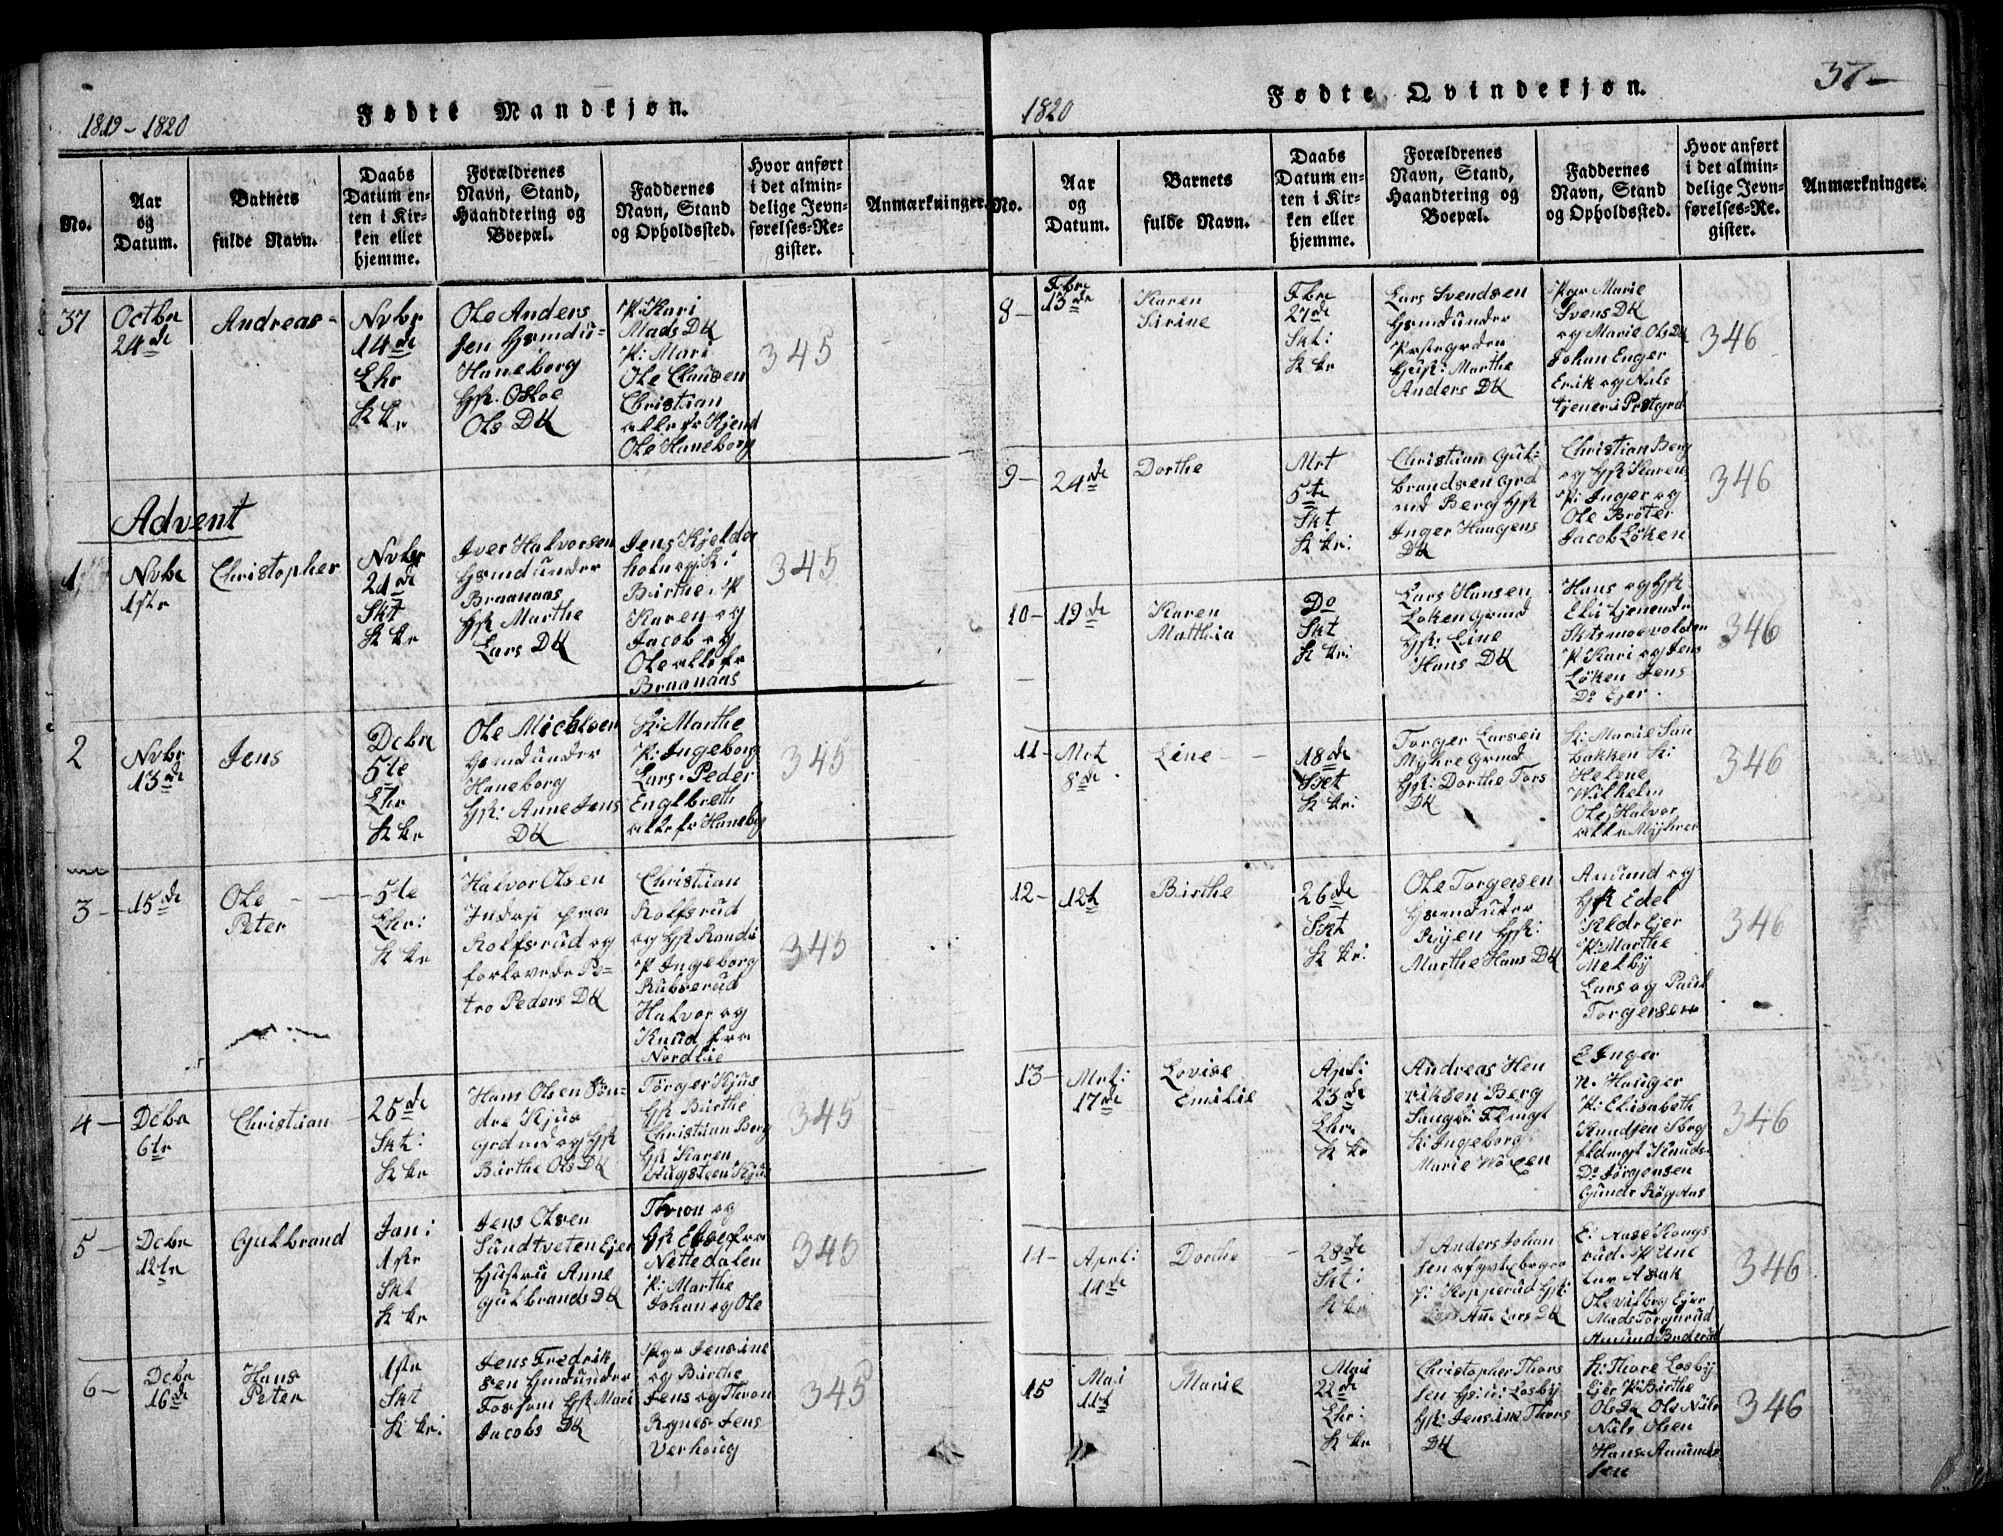 1819 - 1820
Fødte Mandkjøn.
No.
Aar og Datum.
Barnets fulde Navn.
Daabs Datum enten i Kirken eller hjemme.
Forældrenes Navn, Stand, Haandtering og Boepæl.
Faddernes Navn, Stand og Opholdssted.
Hvor anført i det almindelige Jevnførelses-Register.
Anmærkninger.
37
Octbr
24de
Andreas
Nvbr
14de
Chr
K kr
Ole Anders
sen Hsmdu-
Haneborg
Hst. Osloe
Ols DK
P: Kari
Mads DK
P: Mari
Ole Clausen
Christian
alle fr Hjend
Ole Haneborg
345
Advent
1
Nvbr
1ste
Christopher
Nvbr
21de
Skt
K kr
Iver Halvorsen
Hsmd under
Braanaas
Hst Marthe
Lars DK
Jens Kjelder
holm og K:
Birthe. P
Karen og
Jacob og
Ole alle fr
Braanaas
345
2
Nvbr
13de
Jens
Dcbr
5te
Chr
K kr
Ole Michlsen
Hsmd under
Haneborg
Hst: Anne Jens
DK
K: Marthe
P: Ingeborg
Lars. Peder
Englbreth
alle fr Haneb
345
3
15de
Ole
Peter
5te
Chr:
K kr
Halvor Olsen
Inders: paa
Rolfsrud og
forlovede Pe-
tro Peders DK
Christian
Rolfsrud
og Hst Randi
P Ingeborg
Rubserud
Halvor og
Knud fra
Nordlie
345
4
Dcbr
6te
Christian
26de
Skt:
K kr
Hans Olsen Søn-
dre Kjus
grdmd og Hst
Birthe Ols DK
Torger Kjus
Hst Birthe
Christian Berg
Hst Karen
Augsteen Kjus
345
5
Dcbr
12te
Gulbrand
Jan:
1ste
Skt
K kr
Jens Olsen
Sundtveten Ejer
Hustru Anne
Gulbrands DK
Thron og
Hst Else fra
Nettedalen
P: Marthe
Johan og Ole
345
6
Dcbr
16de
Hans
Peter
1ste
Skt
K kr:
Jens Fredrik
sen Hmd under
Fossom Hst Mari
Jacobs DK
Pgr Jensine
og Birthe
Jens og Thron
Agnes Jens
Verhoug
345
37
1820
Fødte Qvindekjøn.
No.
Aar og Datum.
Barnets fulde Navn.
Daabs Datum enten i Kirken eller hjemme.
Forældrenes Navn, Stand, Haandtering og Boepæl.
Faddernes Navn, Stand og Opholdssted.
Hvor anført i det almindelige Jevnførelses-Register.
Anmærkninger.
8
Fbr
13de
Karen
Sirine
Fbr
27de
Skt:
K kr
Lars Svendsen
Hsmd under
Præstegrden
Hust: Marthe
Anders DK
Pgr Marie
Svens DK
og Marie Ols DK
Johan Enger
Erik og Nils
tjener i Prstgrd
346
9
24de
Dorthe
Mrt
5te
Skt
K kr:
Christian Gul-
brandsen grd
md Berg Hst
Inger Haagens
DK
Christian Berg
og Hst Karen
P: Inger og
Ole Bröter
Jacob Löken
346
10
19de
Karen
Mathia
Do
Skt
K kr:
Lars Hansen
Löken grmd
Hst: Line
Hans DK
Hans og Hst
Eli tjenende
Skismoevolden
P Kari og Jens
Löken Jens
Do Ejer.
346
11
Mrt
8de
Line
18de
Skt
K kr:
Torger Larsen
Mykre grmd
Hst: Dorthe Tors
DK
K: Marie San
bakken K:
Helene
Wilhelm
Ole, Halvor
alle Myhrer
346
12
12t
Birthe
26de
Skt
K kr:
Ole Torgersen
Hsmd under
Rijen Hst:
Marthe Hans DK
Amund og
Hst Edel
Kldr Ejer
P: Marthe
Melby
Lars og Paul
Torgersen
346
13
Mrt:
17de
Lovise
Emilie
Apri:
23de
Chr.
K kr
Andreas Hen
riksen Berg
K: Ingeborg
Marie Woxen
E Enger
N. Hauger
P: Elisabeth
Knudsen Berg
Do Jörgensen
346
14
Aprl:
14de
Dorthe
28de
Skt:
K kr
Anders Johan
sen
Kopperud Hst:
Ane Lars DK
E: Aase Kongs
rud. P. Une
Lur Asak
Ole Vilberg Ejer
Mads Torgunrud
Amund Buderud
346
15
Mai
11t
Marie
Mai
22de
Chr:
K kr
Christopher Thors
sen Hsm: Losby
Hst: Jensine Thors
DK
K: Thore Losby
Ejer P: Birthe
Ols DK Ole Nils
Nils Olsen
Hans Amunds
sen
346